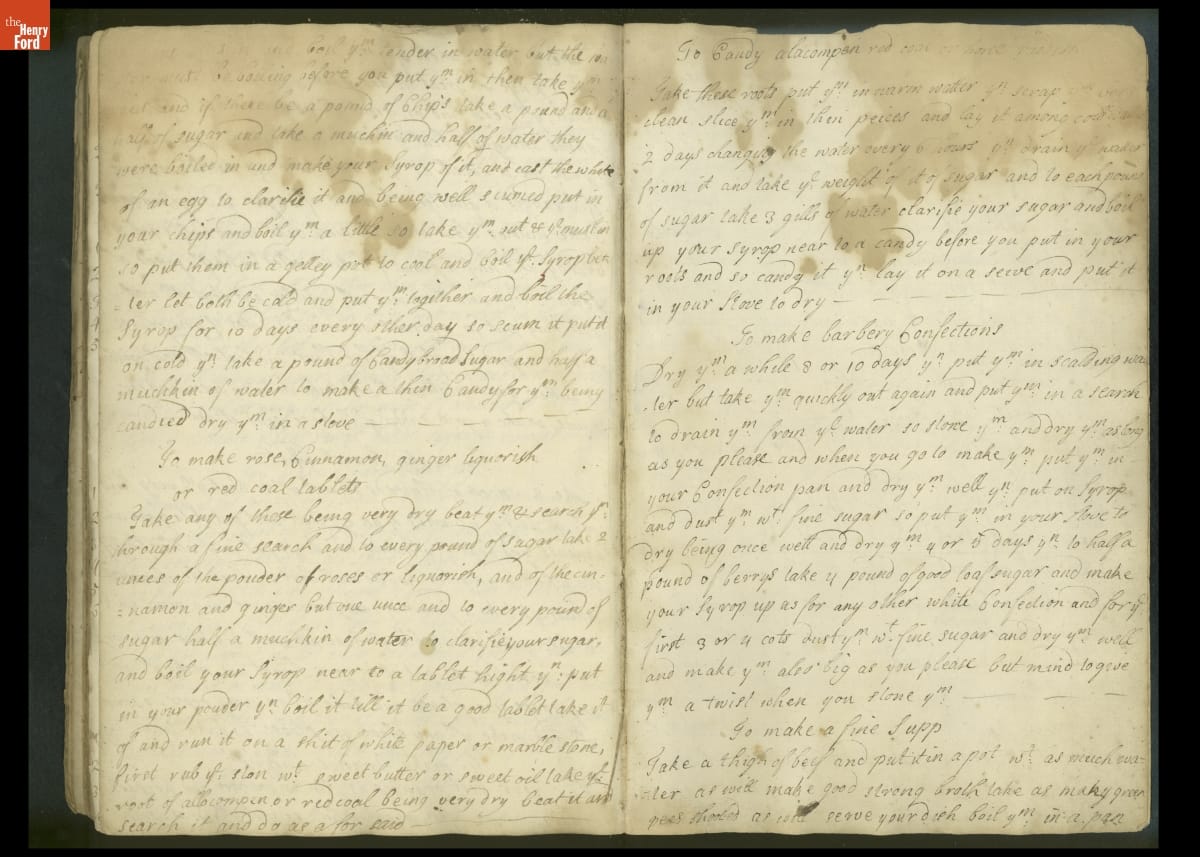 the Henry Ford
boil yᵐ tender in water but the
must be boiling before you put yᵐ in then take yᵐ
and if there be a pound of Chips take a pound and a
half of sugar and take a muchkin and half of water they
were boiled in and make your Syrop of it, and cast the white
of an egg to clarifie it and being well scumed put in
your chips and boil yᵐ a little so take yᵐ out
so put them in a gelley pot to cool and boil yᵉ Syrop bet
=ter let both be cold and put yᵐ together and boil the
Syrop for 10 days every other day so scum it put it
on cold yⁿ take a pound of Candybroad Sugar and half a
muchkin of water to make a thin Candy for yᵐ being
candied dry yᵐ in a stove
To make rose, Cinnamon, ginger liquorish
or red coal tablets
Take any of these being very dry beat yᵐ & search yᵐ
through a fine search and to every pound of sugar take 2
unces of the pouder of roses or liquorish, and of the cin-
=namon and ginger but one unce and to every pound of
sugar half a muchkin of water to clarifie your sugar,
and boil your Syrop near to a tablet hight yⁿ put
in your powder yⁿ boil it till it be a good tablet take it
of and run it on a shit of white paper or marble stone,
first rub yᵉ ston wᵗ sweet butter or sweet oil take yᵉ
root of allacompen or red coal being very dry beat it and
search it and do as a for said
To Candy alacompen red coal or
Take these roots put yᵐ in warm watter yⁿ scrap yᵐ very
clean slice yᵐ in thin peices and lay it among cold
2 days changing the water every 6 hours yⁿ drain yᵉ water
from it and take yᵉ weight of it of sugar and to each pound
of sugar take 3 gills of water clarifie your sugar and boil
up your syrop near to a candy before you put in your
roots and so candy it yⁿ lay it on a seive and put it
in your stove to dry
To make barbery Confections
Dry yᵐ a while 8 or 10 days yⁿ put yᵐ in scalding wa
-ter but take yᵐ quickly out again and put yᵐ in a search
to drain yᵐ from yᵉ water so stone yᵐ and dry yᵐ as long
as you please and when you go to make yᵐ put yᵐ in
your Confection pan and dry yᵐ well yⁿ put on Syrop
and dust yᵐ wᵗ fine sugar so put yᵐ in your stove to
dry being once wett and dry yᵐ 4 or 5 days yⁿ to half a
pound of berrys take 4 pound of good loaf sugar and make
your Syrop up as for any other white Confection and for yᵉ
first 3 or 4 cots dust yᵐ wᵗ fine sugar and dry yᵐ well
and make yᵐ also big as you please but mind to give
yᵐ a twist when you stone yᵐ
To make a fine Supp
Take a thigh of beif and put it in a pot wᵗ as much wa-
-ter as will make good strong broth take as many green
pees shooled as will serve your dish boil yᵐ in a pan